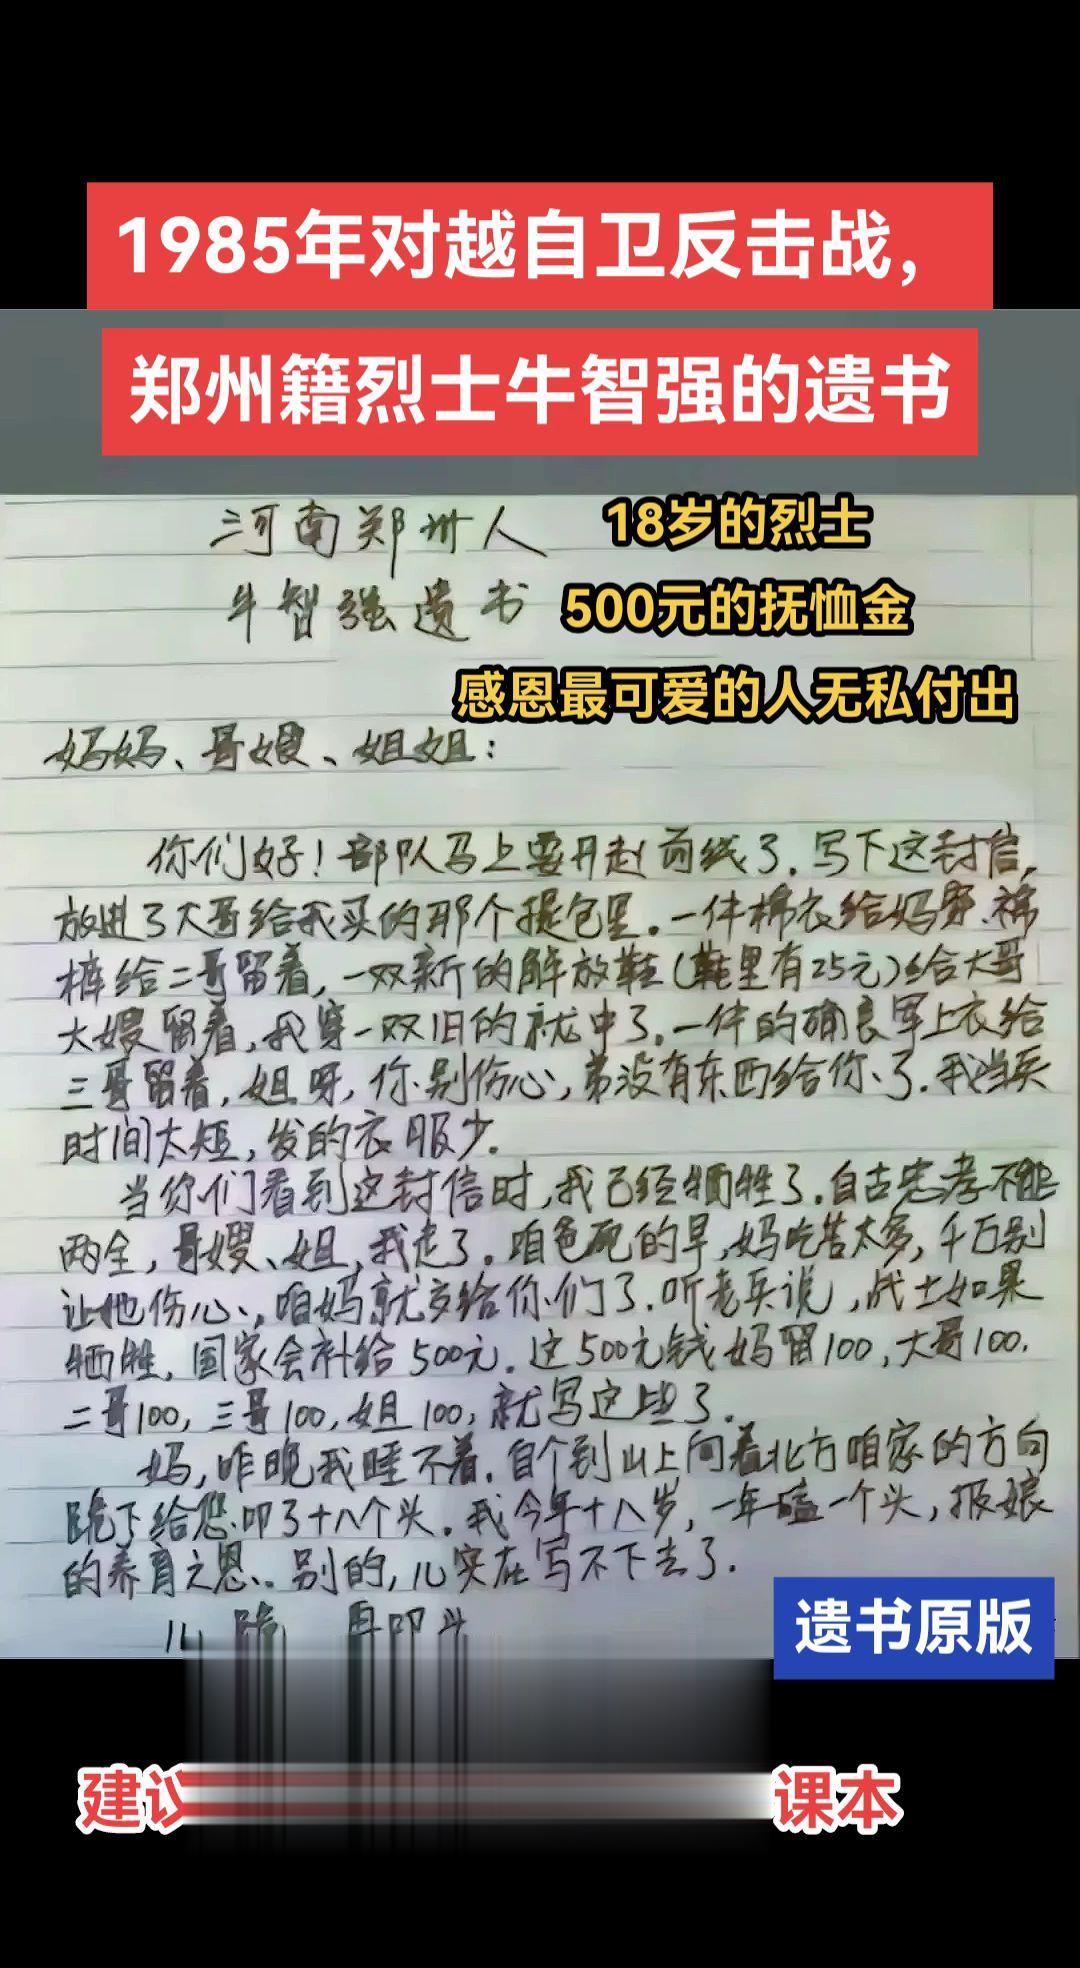 1985年对越自卫反击战，
郑州籍烈士牛智强的遗书
河南郑州人
18岁的烈士
牛智强遗书
500元的抚恤金
感恩最可爱的人无私付出
妈妈、哥嫂、姐姐：
你们好！部队马上要开赴前线了．写下这封信，
放进了大哥给我买的那个提包里．一件棉衣给妈穿、棉
裤给二哥留着，一双新的解放鞋(鞋里有25元)给大哥
大嫂留着，我穿一双旧的就中了．一件的确良军上衣给
三哥留着，姐呀，你别伤心，弟没有东西给你了．我当兵
时间太短，发的衣服少．
当你们看到这封信时，我已经牺牲了．自古忠孝不能
两全，哥嫂、姐，我走了．咱爸死的早，妈吃苦太多，千万别
让她伤心，咱妈就交给你们了．听老兵说，战士如果
牺牲，国家会补给500元．这500元钱妈留100，大哥100，
二哥100，三哥100，姐100，就写这些了．
妈，昨晚我睡不着．自个到山上向着北方咱家的方向
跪下给您叩了十八个头．我今年十八岁，一年磕一个头，报娘
的养育之恩．别的，儿实在写不下去了．
儿 跪 再叩头
遗书原版
建议
课本